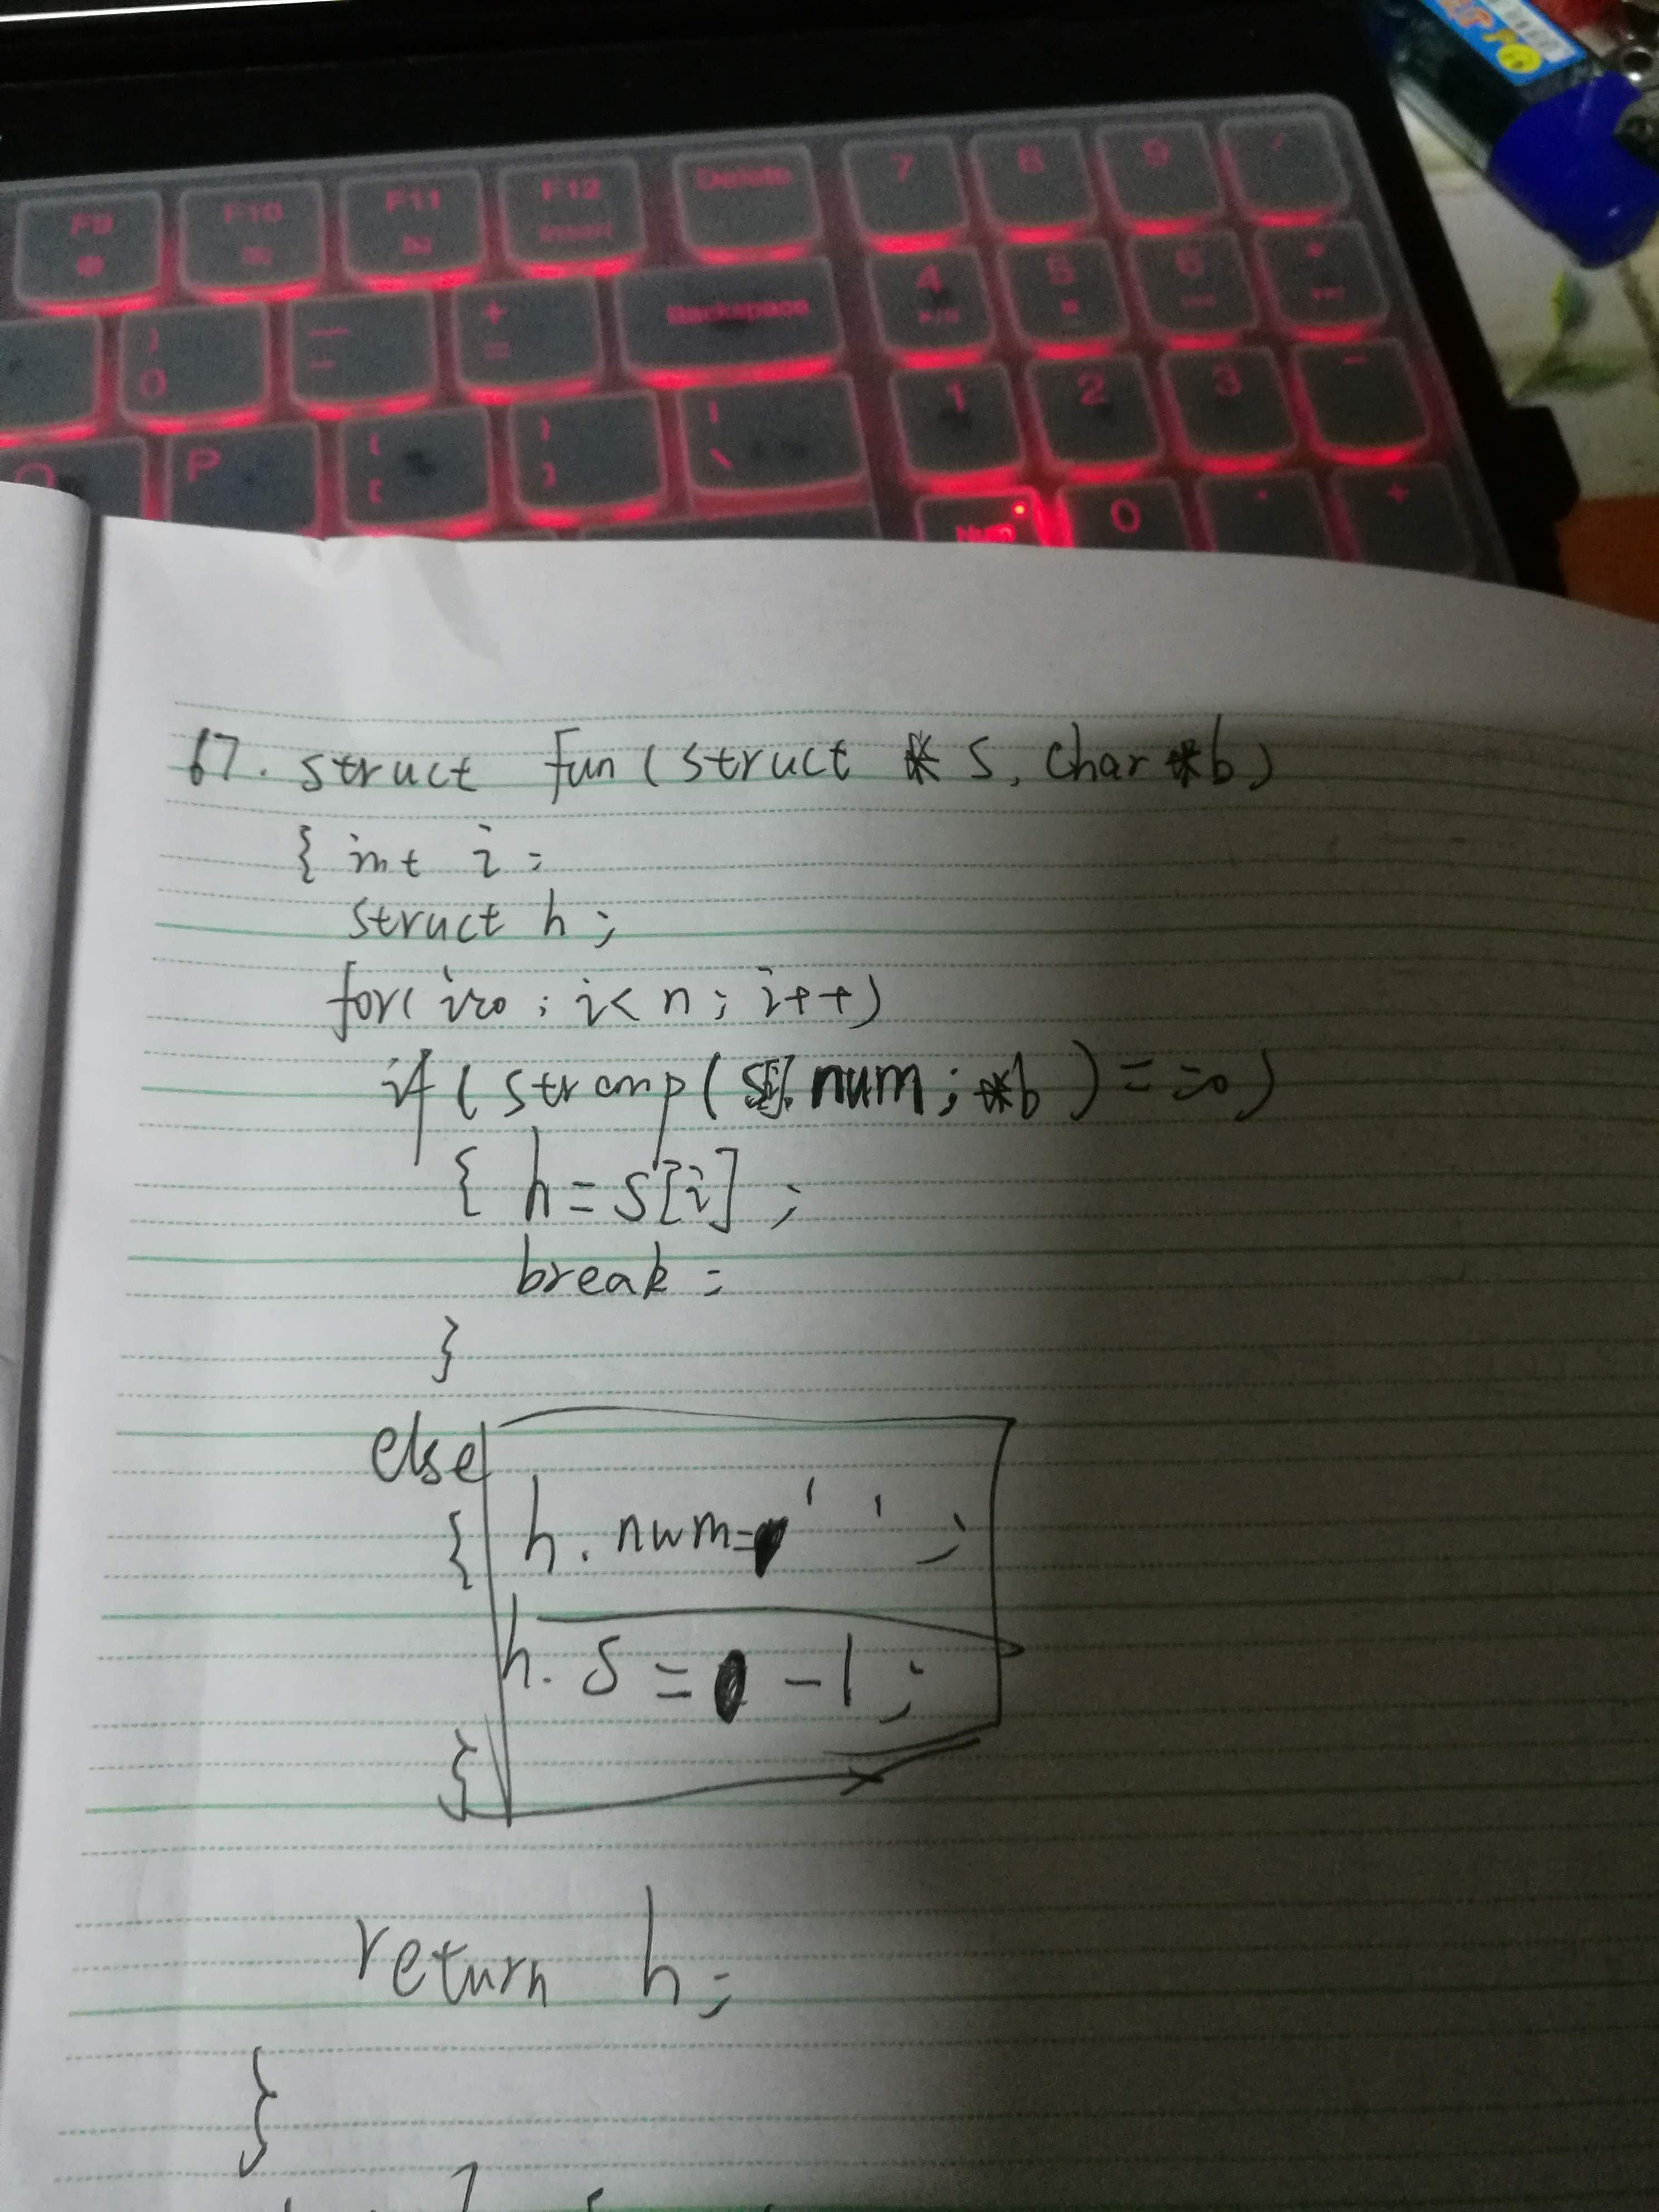 F9 F10 F11 F12 Delete 7 8 9
insert
) 0 — - + = Backspace 4 5 6 *
O P { [ } ] | \ 1 2 3 -
Num 0 . +
67. struct fun (struct * s, char *b)
{ int i ;
struct h ;
for( i=0 ; i< n ; i++)
if ( strcmp( s[i]. num ; *b ) = =0)
{ h = s[i] ;
break ;
}
else
{ h. num= ' ' ;
h. s = -1 ;
}
return h ;
}